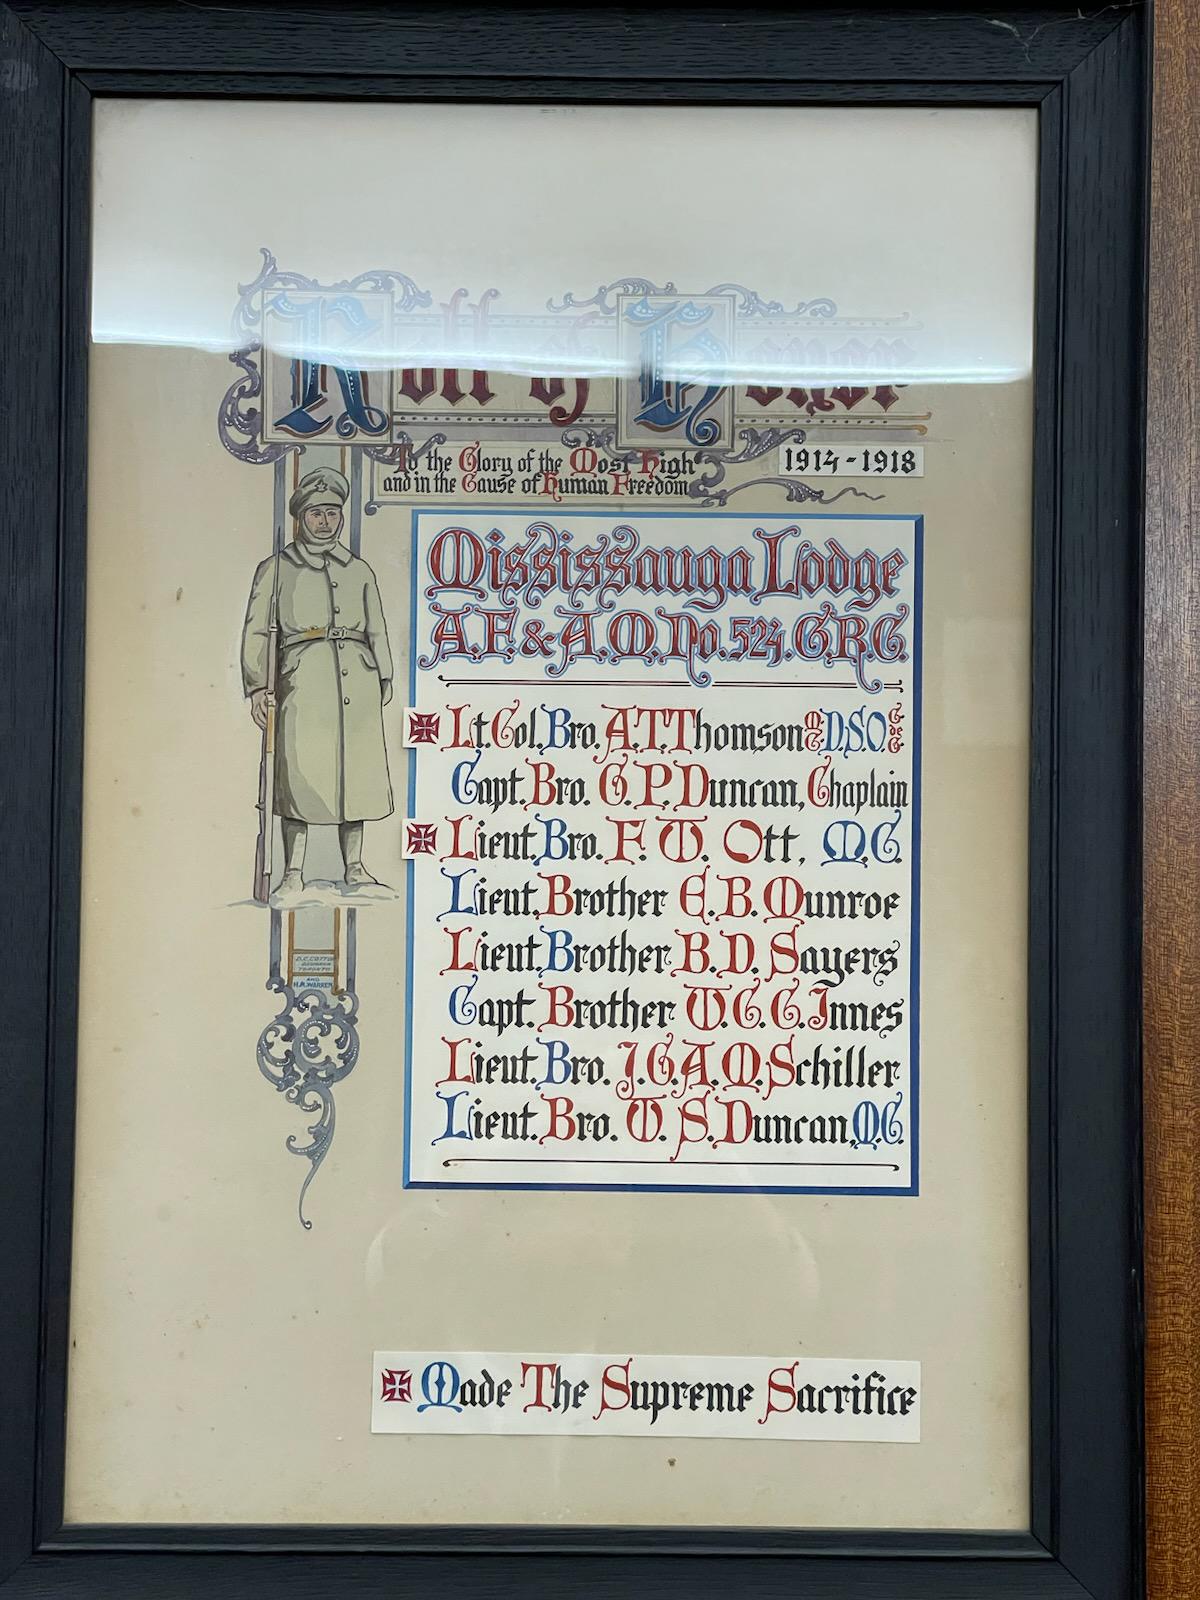 Roll of Honor
To the Glory of the Most High
and in the Cause of Human Freedom
1914-1918
Mississauga Lodge
A.F. & A.M. No. 524. G.R.C.
Lt. Col. Bro. A.T. Thomson M.C. D.S.O. C de G
Capt. Bro. G. P. Duncan, Chaplain
Lieut. Bro. F. W. Ott, M.C.
Lieut. Brother E. B. Munroe
Lieut. Brother B. D. Sayers
Capt. Brother W. C. G. Innes
Lieut. Bro. J. G. A. M. Schiller
Lieut. Bro. W. S. Duncan, M.C.
D.C. COTTON
DESIGNER
TORONTO
AND
H.A. WARREN
Made The Supreme Sacrifice